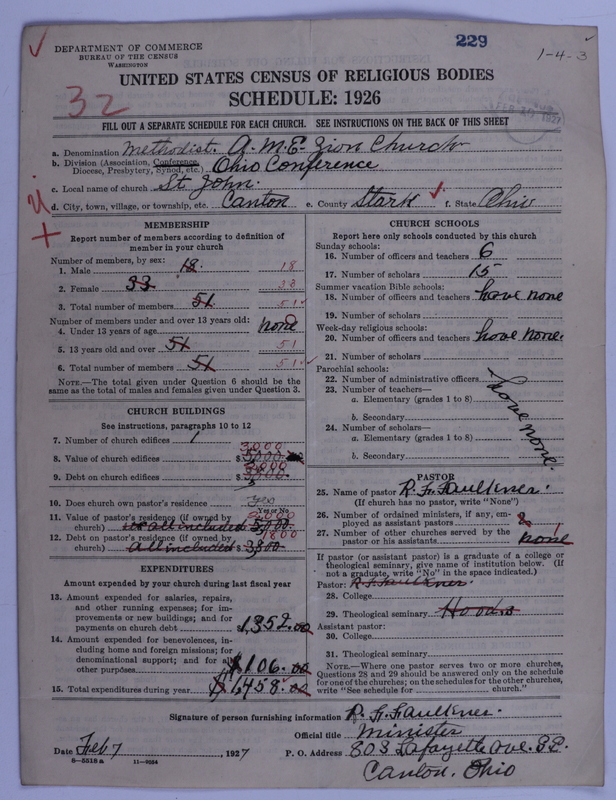 229
1-4-3
DEPARTMENT OF COMMERCE
BUREAU OF THE CENSUS
WASHINGTON
UNITED STATES CENSUS OF RELIGIOUS BODIES
SCHEDULE: 1926
32
FILL OUT A SEPARATE SCHEDULE FOR EACH CHURCH. SEE INSTRUCTIONS ON THE BACK OF THIS SHEET
a. Denomination Methodist. A.M.E. Zion Church
b. Division (Association, Conference, Diocese, Presbytery, Synod, etc.) Ohio Conference
c. Local name of church St John.
d. City, town, village, or township, etc. Canton e. County Stark f. State Ohio
MEMBERSHIP
Report number of members according to definition of
member in your church
Number of members, by sex:
1. Male 18. 18
2. Female 33 33
3. Total number of members 51 51
Number of members under and over 13 years old:
4. Under 13 years of age none
5. 13 years old and over 51 51
6. Total number of members 51 51
NOTE.—The total given under Question 6 should be the
same as the total of males and females given under Question 3.
CHURCH BUILDINGS
See instructions, paragraphs 10 to 12
7. Number of church edifices 1
8. Value of church edifices $ 3,000
9. Debt on church edifices $
10. Does church own pastor's residence Yes
Yes or No
11. Value of pastor's residence (if owned by
church) all included
12. Debt on pastor's residence (if owned by 1800
church) all included $ 3,800
EXPENDITURES
Amount expended by your church during last fiscal year
13. Amount expended for salaries, repairs,
and other running expenses; for im-
provements or new buildings; and for
payments on church debt $1,352.00
14. Amount expended for benevolences, in-
cluding home and foreign missions; for
denominational support; and for all
other purposes $106.00
15. Total expenditures during year $1,458.00
CHURCH SCHOOLS
Report here only schools conducted by this church
Sunday schools:
16. Number of officers and teachers 6
17. Number of scholars 15
Summer vacation Bible schools:
18. Number of officers and teachers have none
19. Number of scholars
Week-day religious schools:
20. Number of officers and teachers have none.
21. Number of scholars
Parochial schools:
22. Number of administrative officers
23. Number of teachers—
a. Elementary (grades 1 to 8)
b. Secondary
24. Number of scholars—
a. Elementary (grades 1 to 8)
b. Secondary
have none.
PASTOR
25. Name of pastor R. F. Faulkner.
(If church has no pastor, write "None")
26. Number of ordained ministers, if any, em-
ployed as assistant pastors
27. Number of other churches served by the
pastor or his assistants none
If pastor (or assistant pastor) is a graduate of a college or
theological seminary, give name of institution below. (If
not a graduate, write "No" in the space indicated.)
Pastor: R. F. Faulkner.
28. College
29. Theological seminary Hoods
Assistant pastor:
30. College
31. Theological seminary
NOTE.—Where one pastor serves two or more churches,
Questions 28 and 29 should be answered only on the schedule
for one of the churches; on the schedules for the other churches,
write "See schedule for church."
Signature of person furnishing information R. F. Faulkner.
Official title Minister
Date Feb 7, 1927 P. O. Address 803 Lafayette Ave. S.E.
8-5518a 11-9534
Canton. Ohio